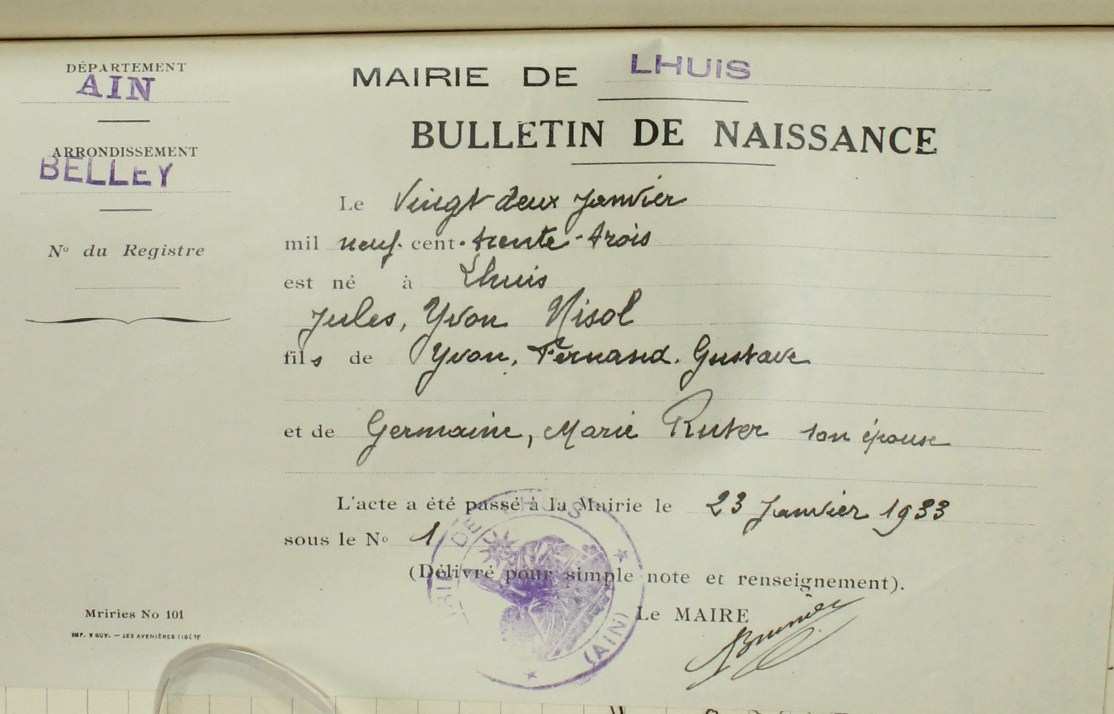 DÉPARTEMENT
AIN
ARRONDISSEMENT
BELLEY
No du Registre
MAIRIE DE LHUIS
BULLETIN DE NAISSANCE
Le Vingt deux Janvier
mil neuf cent trente-trois
est né à Lhuis
Jules, Yvon Nisol
fils de Yvon, Fernand. Gustave
et de Germaine, Marie Ruter son épouse
L'acte a été passé à la Mairie le 23 Janvier 1933
sous le No 1
(Délivré pour simple note et renseignement).
Le MAIRE
MAIRIE DE LHUIS
(AIN)
Mriries No 101